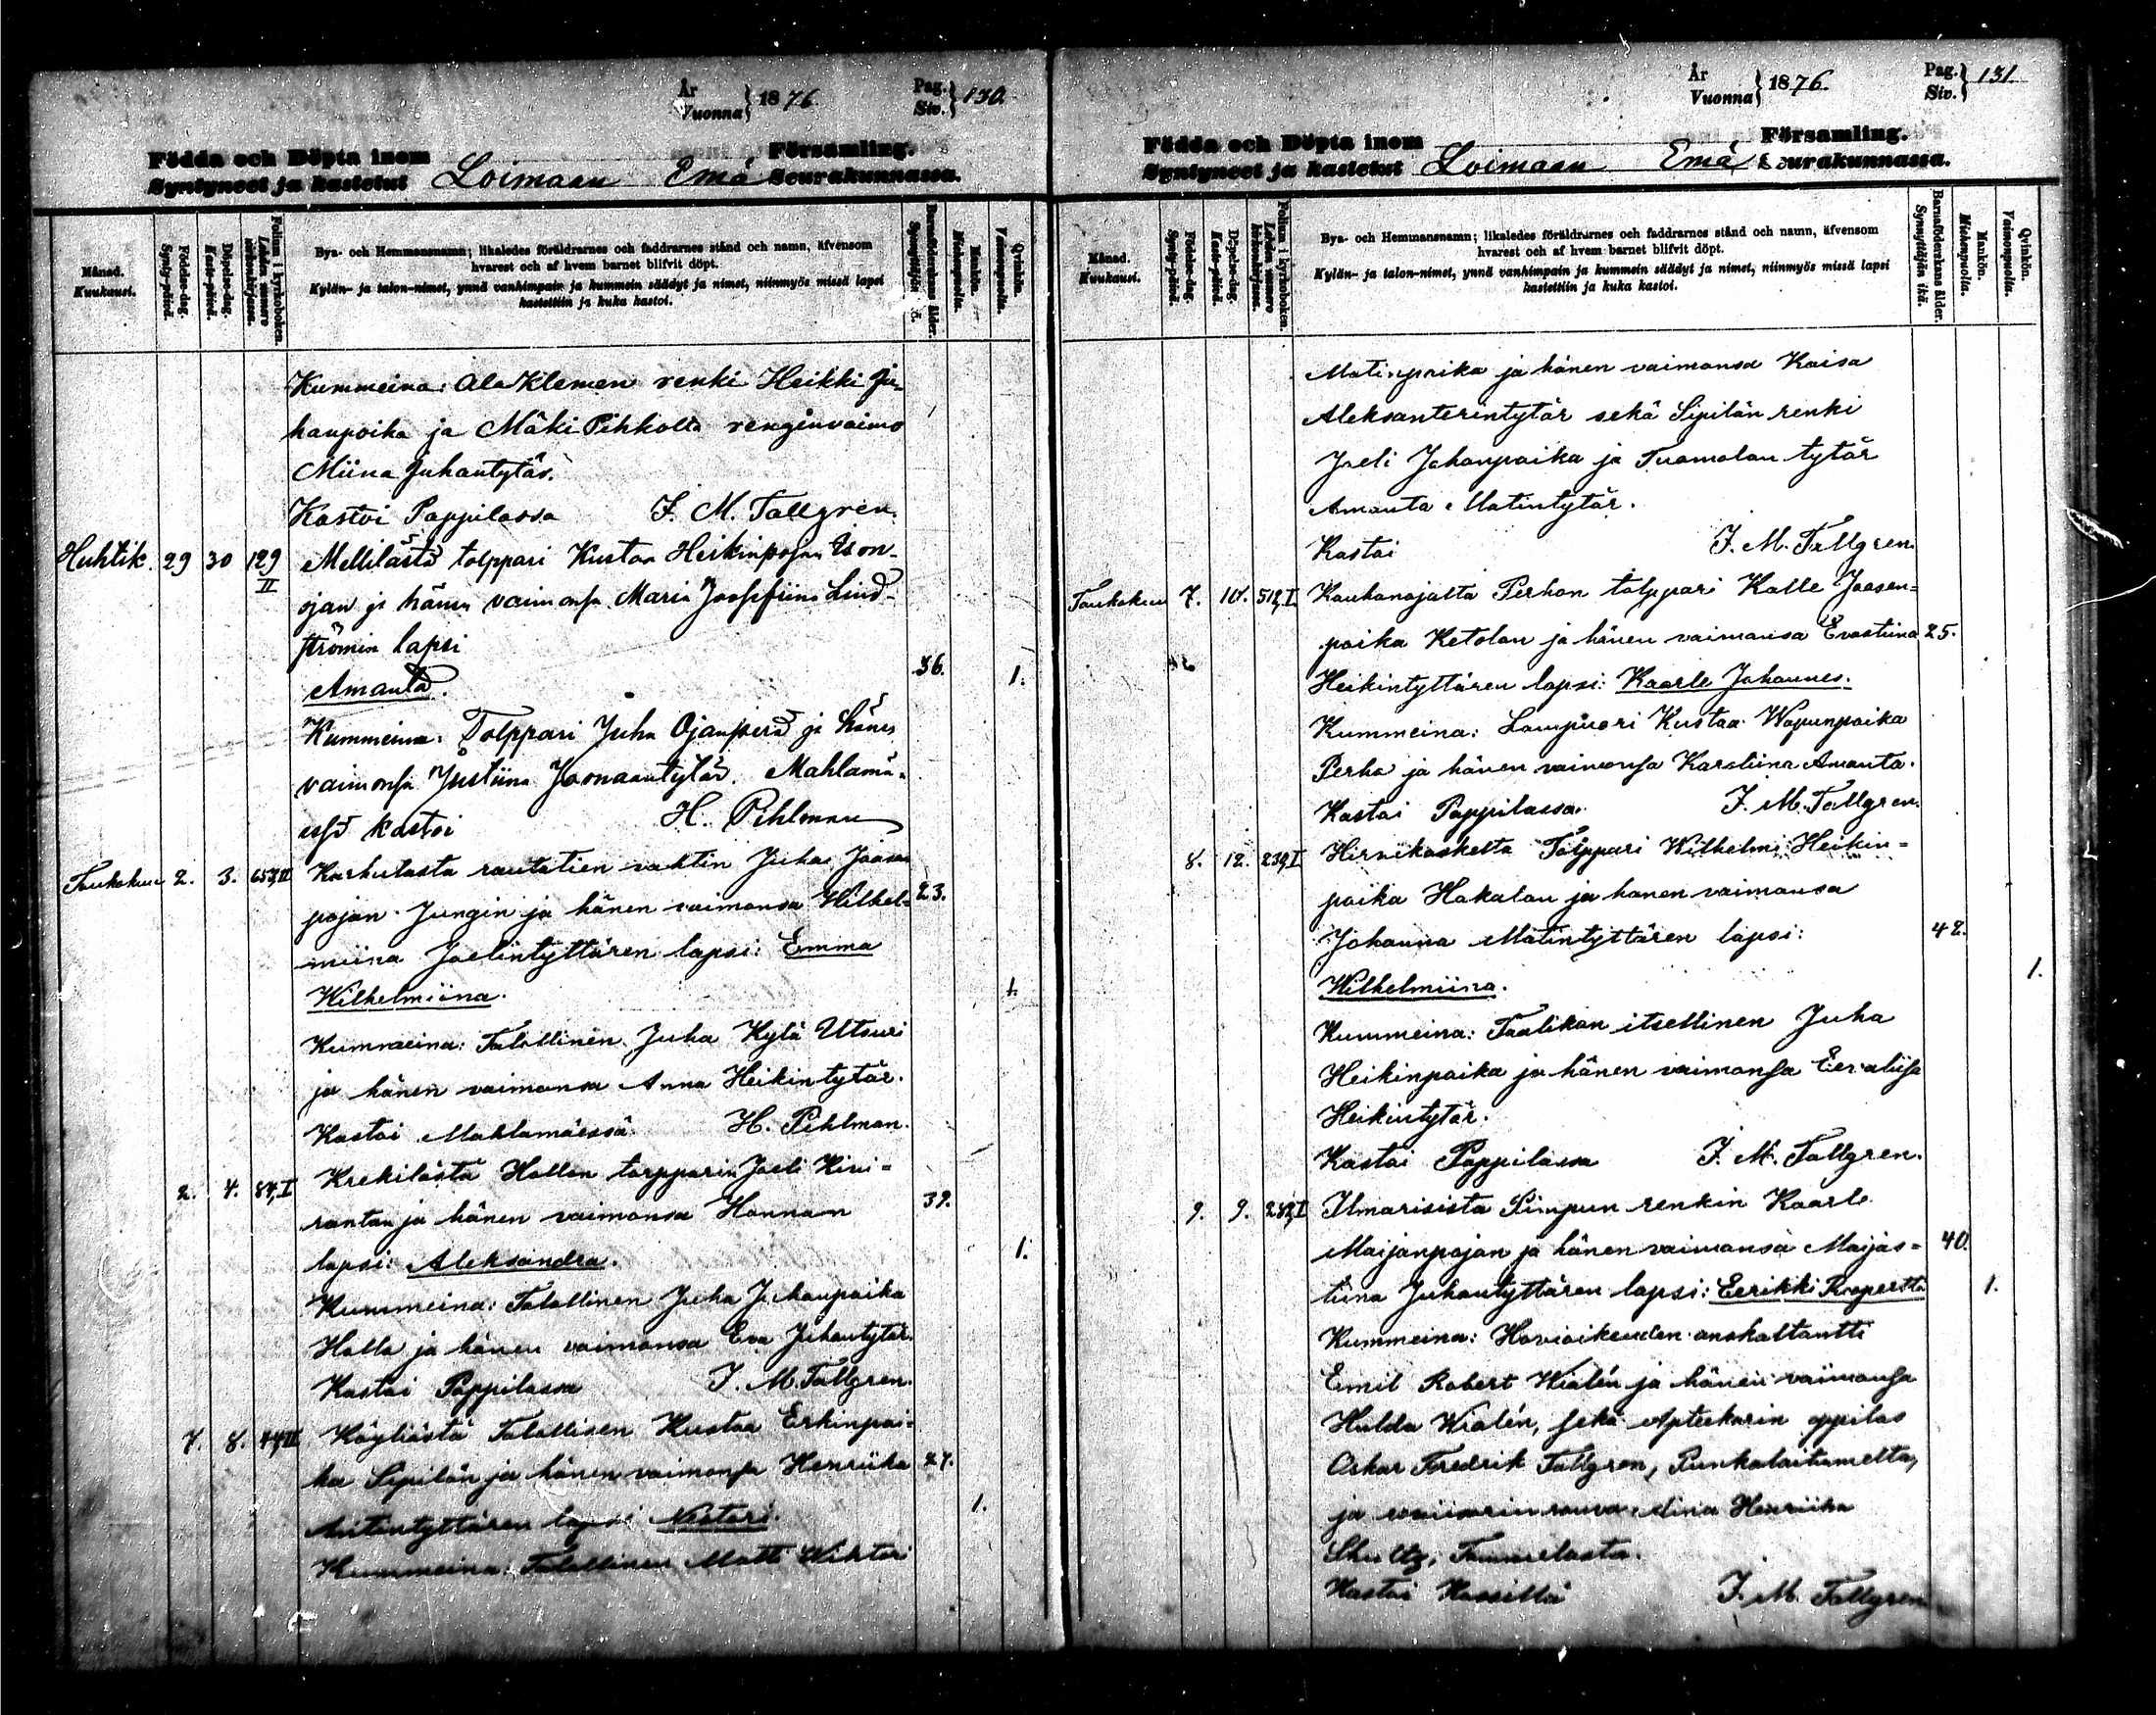 År
Vuonna } 1876. Pag.
Siv. } 130.
Födda och Döpta inom Församling.
Syntyneet ja kastetut Loimaan Emä Seurakunnassa.
Månad.
Kuukausi.
Födelse-dag.
Synty-päivä.
Döpelse-dag.
Kaste-päivä.
Folium i kyrkoboken.
Lehden numero kirkonkirjassa.
Bya- och Hemmansnamn; likaledes föräldrarnes och faddrarnes stånd och namn, äfvensom
hvarest och af hvem barnet blifvit döpt.
Kylän- ja talon-nimet, ynnä vanhimpain ja kummein säädyt ja nimet, niinmyös missä lapsi
kastettiin ja kuka kastoi.
Barnaföderskans ålder.
Synnyttäjän
Mankön.
Miehenpuolta.
Qvinkön.
Vaimonpuolta.
Kummeina: Ala Klemen renki Heikki Ju-
hanpoika ja Mäki Pihkolla renginvaimo
Miina Juhantytär.
Kastoi Pappilassa J. M. Tallgren.
Huhtik. 29 30 129 II Mellilästä tolppari Kustaa Heikinpojan Ison-
ojan ja hänen vaimonsa Maria Joosefiina Lind-
strömin lapsi
Amanda. 36. 1.
Kummeina: Tolppari Juha Ojanperä ja hänen
vaimonsa Justiina Joonaantytär. Mahlamä-
essä kastoi H. Pihlman
Toukokuu 2. 3. 657,II Karhulasta rautatien vahtin Juha Joosen
pojan Jungin ja hänen vaimonsa Wilhel- 23.
miina Joelintyttären lapsi: Emma
Wilhelmiina. 1.
Kummeina: Talollinen Juha Kylä Utsuri
ja hänen vaimonsa Anna Heikintytär.
Kastoi Mahlamäessä H. Pihlman.
2. 4. 84,I Krekilästä Hollon torpparin Joeli Kivi-
rantan ja hänen vaimonsa Hannan 39.
lapsi: Aleksandra. 1.
Kummeina: Talollinen Juha Juhanpoika
Holla ja hänen vaimonsa Eva Juhantytär.
Kastoi Pappilassa J. M. Tallgren.
7. 8. 44,II Köyliöstä Talollisen Kustaa Erkinpoi-
ka Sipilän ja hänen vaimonsa Henriika 27.
Antintyttären lapsi Nestori. 1.
Kummeina: Talollinen Matti Wihtori
År
Vuonna } 1876. Pag.
Siv. } 131.
Födda och Döpta inom Församling.
Syntyneet ja kastetut Loimaan Emä Seurakunnassa.
Månad.
Kuukausi.
Födelse-dag.
Synty-päivä.
Döpelse-dag.
Kaste-päivä.
Folium i kyrkoboken.
Lehden numero kirkonkirjassa.
Bya- och Hemmansnamn; likaledes föräldrarnes och faddrarnes stånd och namn, äfvensom
hvarest och af hvem barnet blifvit döpt.
Kylän- ja talon-nimet, ynnä vanhimpain ja kummein säädyt ja nimet, niinmyös missä lapsi
kastettiin ja kuka kastoi.
Barnaföderskans ålder.
Synnyttäjän ikä.
Mankön.
Miehenpuolta.
Qvinkön.
Vaimonpuolta.
Matinpoika ja hänen vaimonsa Kaisa
Aleksanterintytär sekä Sipilän renki
Iseli Johanpoika ja Tuomolan tytär
Amanta Matintytär.
Kastoi J. M. Tallgren.
Toukokuu 7. 10. 512,I. Kauhanojalta Perhon tolppari Kalle Joosen-
poika Ketolan ja hänen vaimonsa Evastiina 25.
Heikintyttären lapsi: Kaarle Johannes.
Kummeina: Lampuori Kustaa Wapunpoika
Perho ja hänen vaimonsa Karoliina Amanta.
Kastoi Pappilassa. J. M. Tallgren.
8. 12. 239,I Hirvikoskelta Tolppari Wilhelmi Heikin-
poika Hakalan ja hanen vaimonsa
Johanna Matintyttären lapsi: 42.
Wilhelmiina. 1.
Kummeina: Taalikan itsellinen Juha
Heikinpoika ja hänen vaimonsa Eevaliisa
Heikintytär.
Kastoi Pappilassa J. M. Tallgren.
9. 9. 242,I Ilmarisista Simpun renkin Kaarle
Maijanpojan ja hänen vaimonsa Maijas- 40.
tiina Juhantyttären lapsi: Eerikki Roopertti 1.
Kummeina: Hovioikeuden auskultantti
Emil Robert Wialén ja hänen vaimonsa
Hulda Wialén, sekä Apteekarin oppilas
Oskar Fredrik Tallgren, Punkalaitumelta,
ja rouva Aina Henriika
Shultz, Tammelasta.
Kastoi J. M. Tallgren